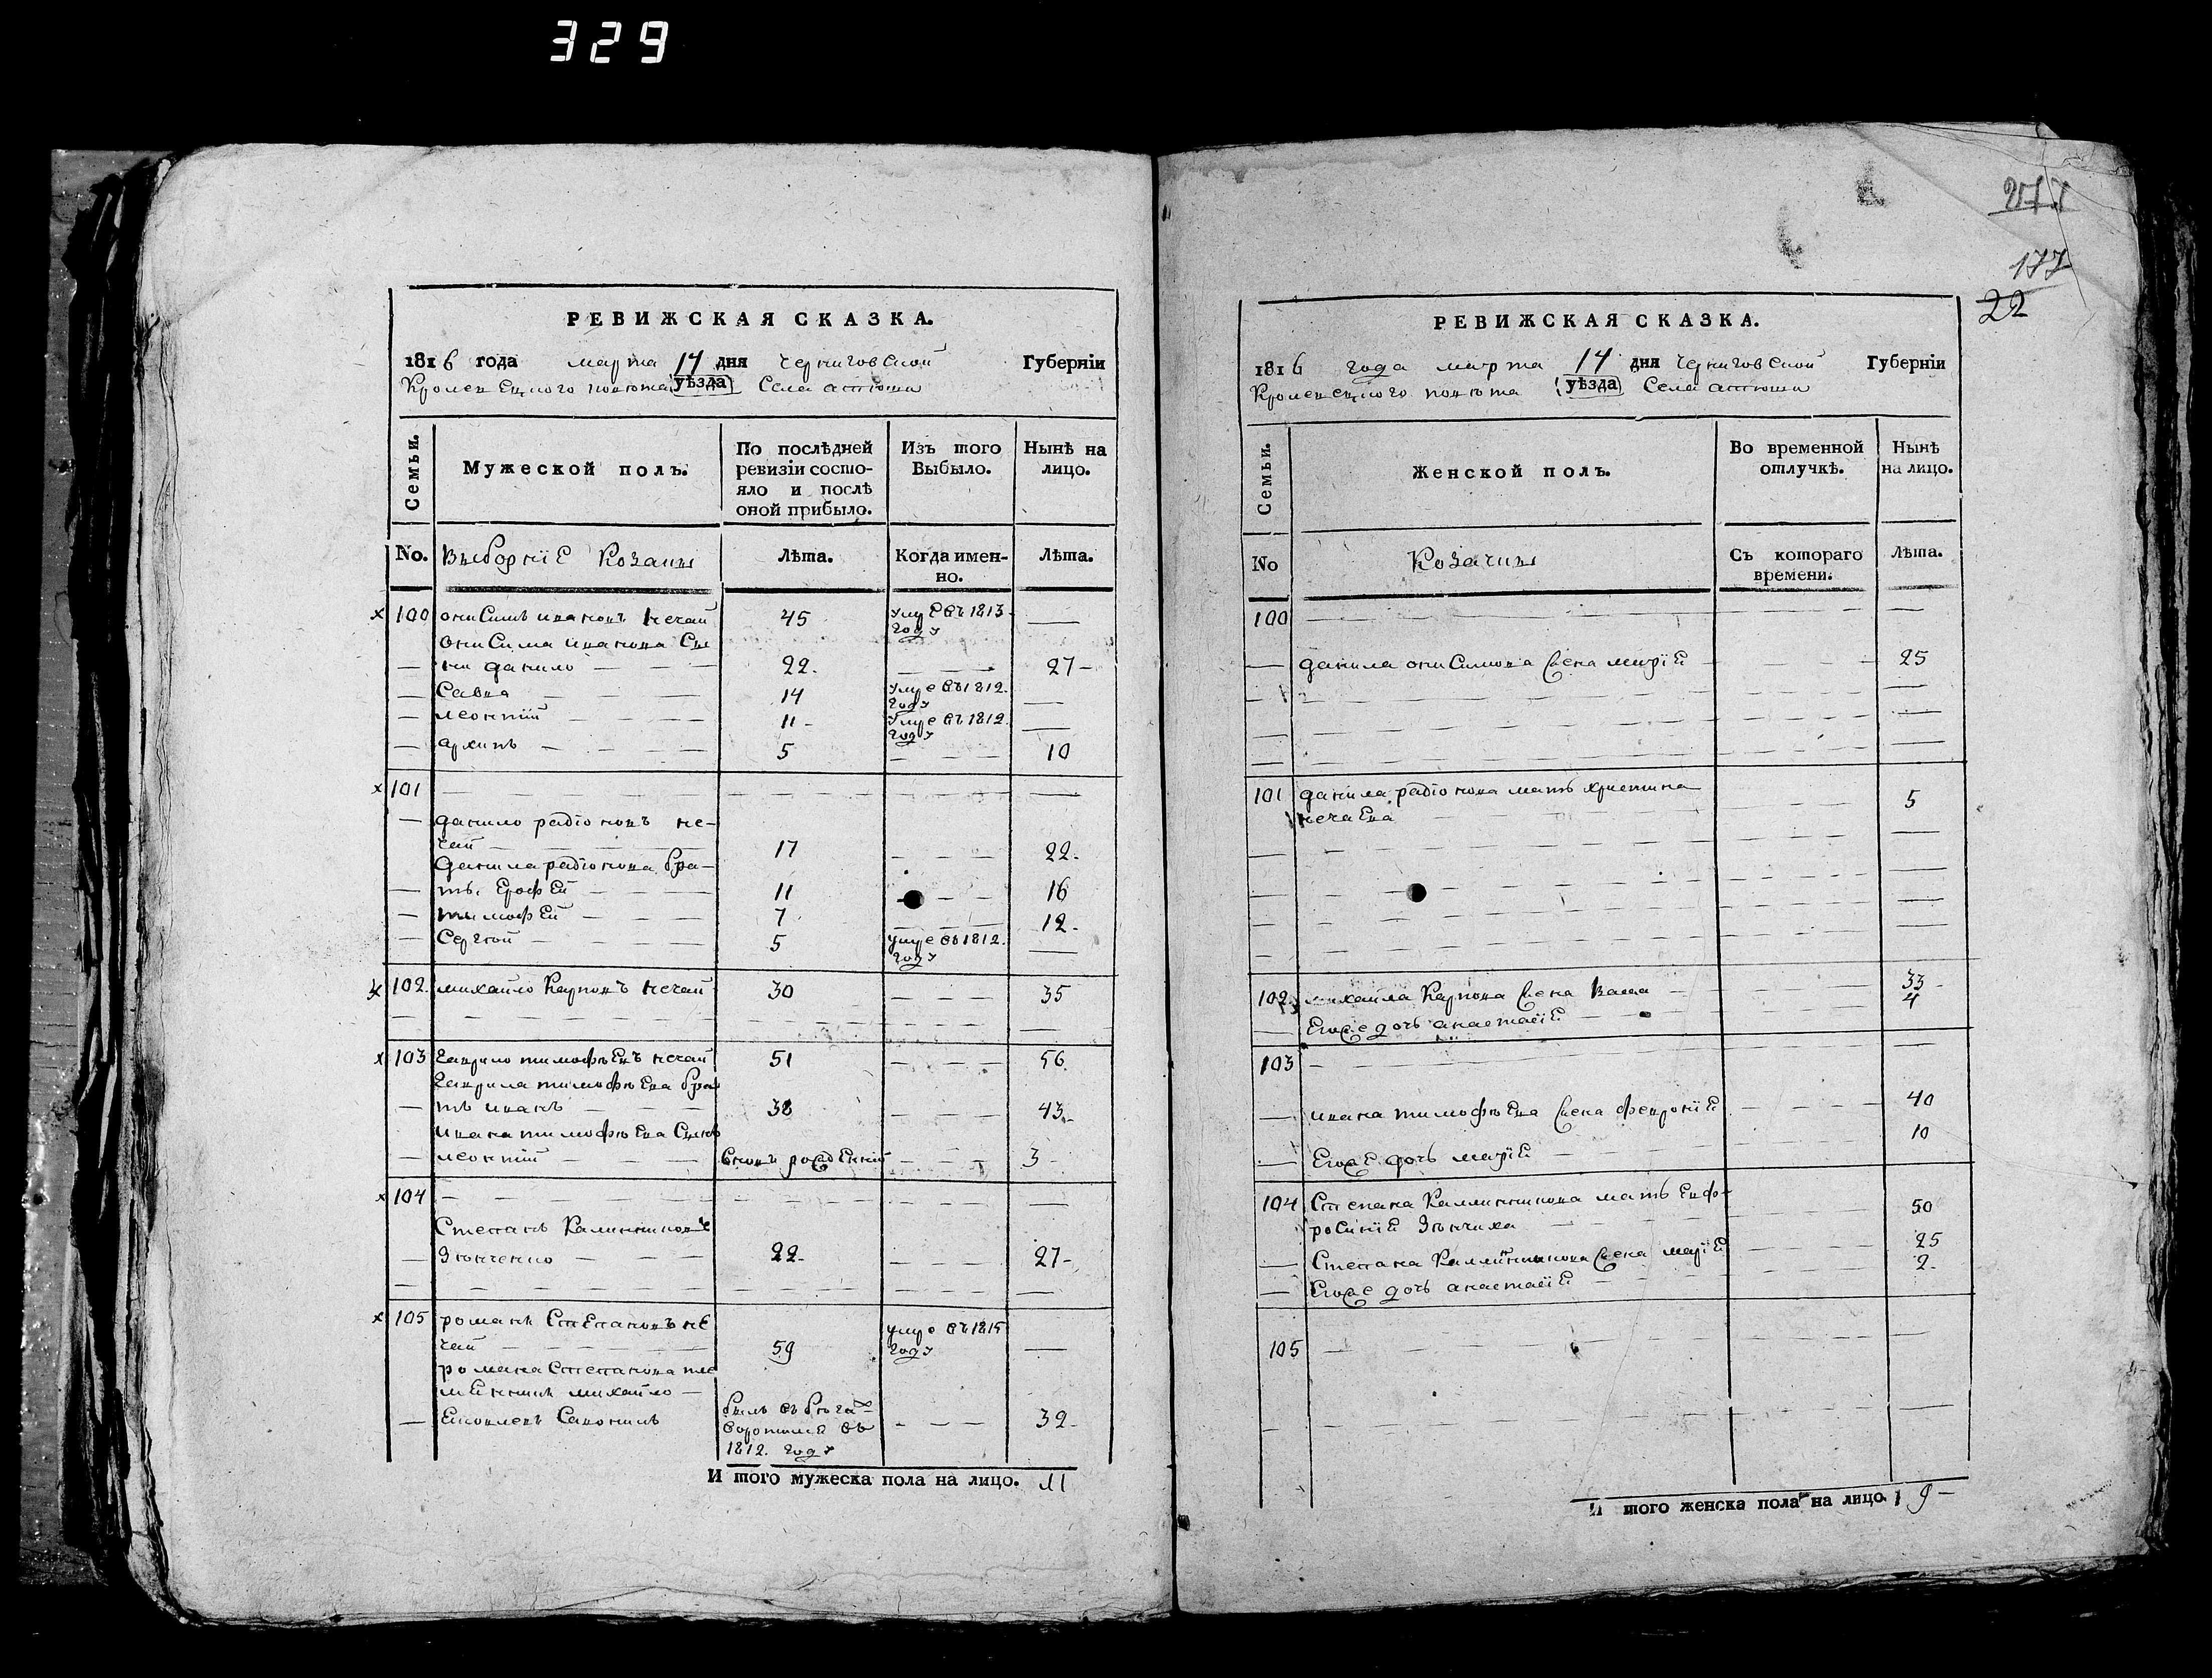 329
РЕВИЖСКАЯ СКАЗКА.
1816 года марта 14 дня Черниговской Губерніи
Кролевецкого повюта уѣзда Села атюши
Семьи.
Мужеской полъ.
По послѣдней ревизіи состояло и послѣ оной прибыло.
Изъ того Выбыло.
Нынѣ на лицо.
No. Выборніе Козаки Лѣта. Когда именно. Лѣта.
100 онисимъ ивановъ нечай 45 умре въ 1813 году —
онисима иванова Сы
— ни данило 22. — 27
— Савка 14 умре въ 1812. году —
— леонтій 11 умре въ 1812. году —
— архипъ 5 — 10
101 —
— данило радіоновъ не-
чай 17 — 22.
данила радіонова бра-
— тъ. Ерофей 11 — 16
— тимофей 7 — 12.
— Сергюй 5 умре въ 1812. году —
102. михайло Карповъ нечай 30 — 35
103 гаврило тимофюевъ нечай 51 — 56.
гаврила тимофюева бра
— тъ иванъ 38 — 43.
ивана тимофюева Сынъ
— леонтій вновъ рожденній — 3
104 —
Степанъ Калинниковъ
— Зюнченко 22. — 27
105 романъ Степановъ не
чай 59 умре въ 1815 году —
романа Степанова пле
менникъ михайло
— Яковлевъ 39
И того мужеска пола на лицо. 11
277
177
22
РЕВИЖСКАЯ СКАЗКА.
1816 года марта 14 дня Черниговской Губерніи
Кролевецкого повюта уѣзда Села атюши
Семьи.
Женской полъ.
Во временной отлучкѣ.
Нынѣ на лицо.
No Козачки Съ котораго времени. Лѣта.
100 —
— данила онисимова жена маріе 25
101 данила радіонова мать христина 5
нечаева
102. михайла Карпова жена 33
— Егоже дочь анастасіе 4
103 —
— ивана тимофюева жена февроніе 40
— Егоже дочь маріе 10
104 Степана Калинникова мать Евфо-
росиніе Зюнчиха 50
— Степана Калинникова жена маріе 25
— Егоже дочь анастасіе 2.
105 —
И того женска пола на лицо. 9